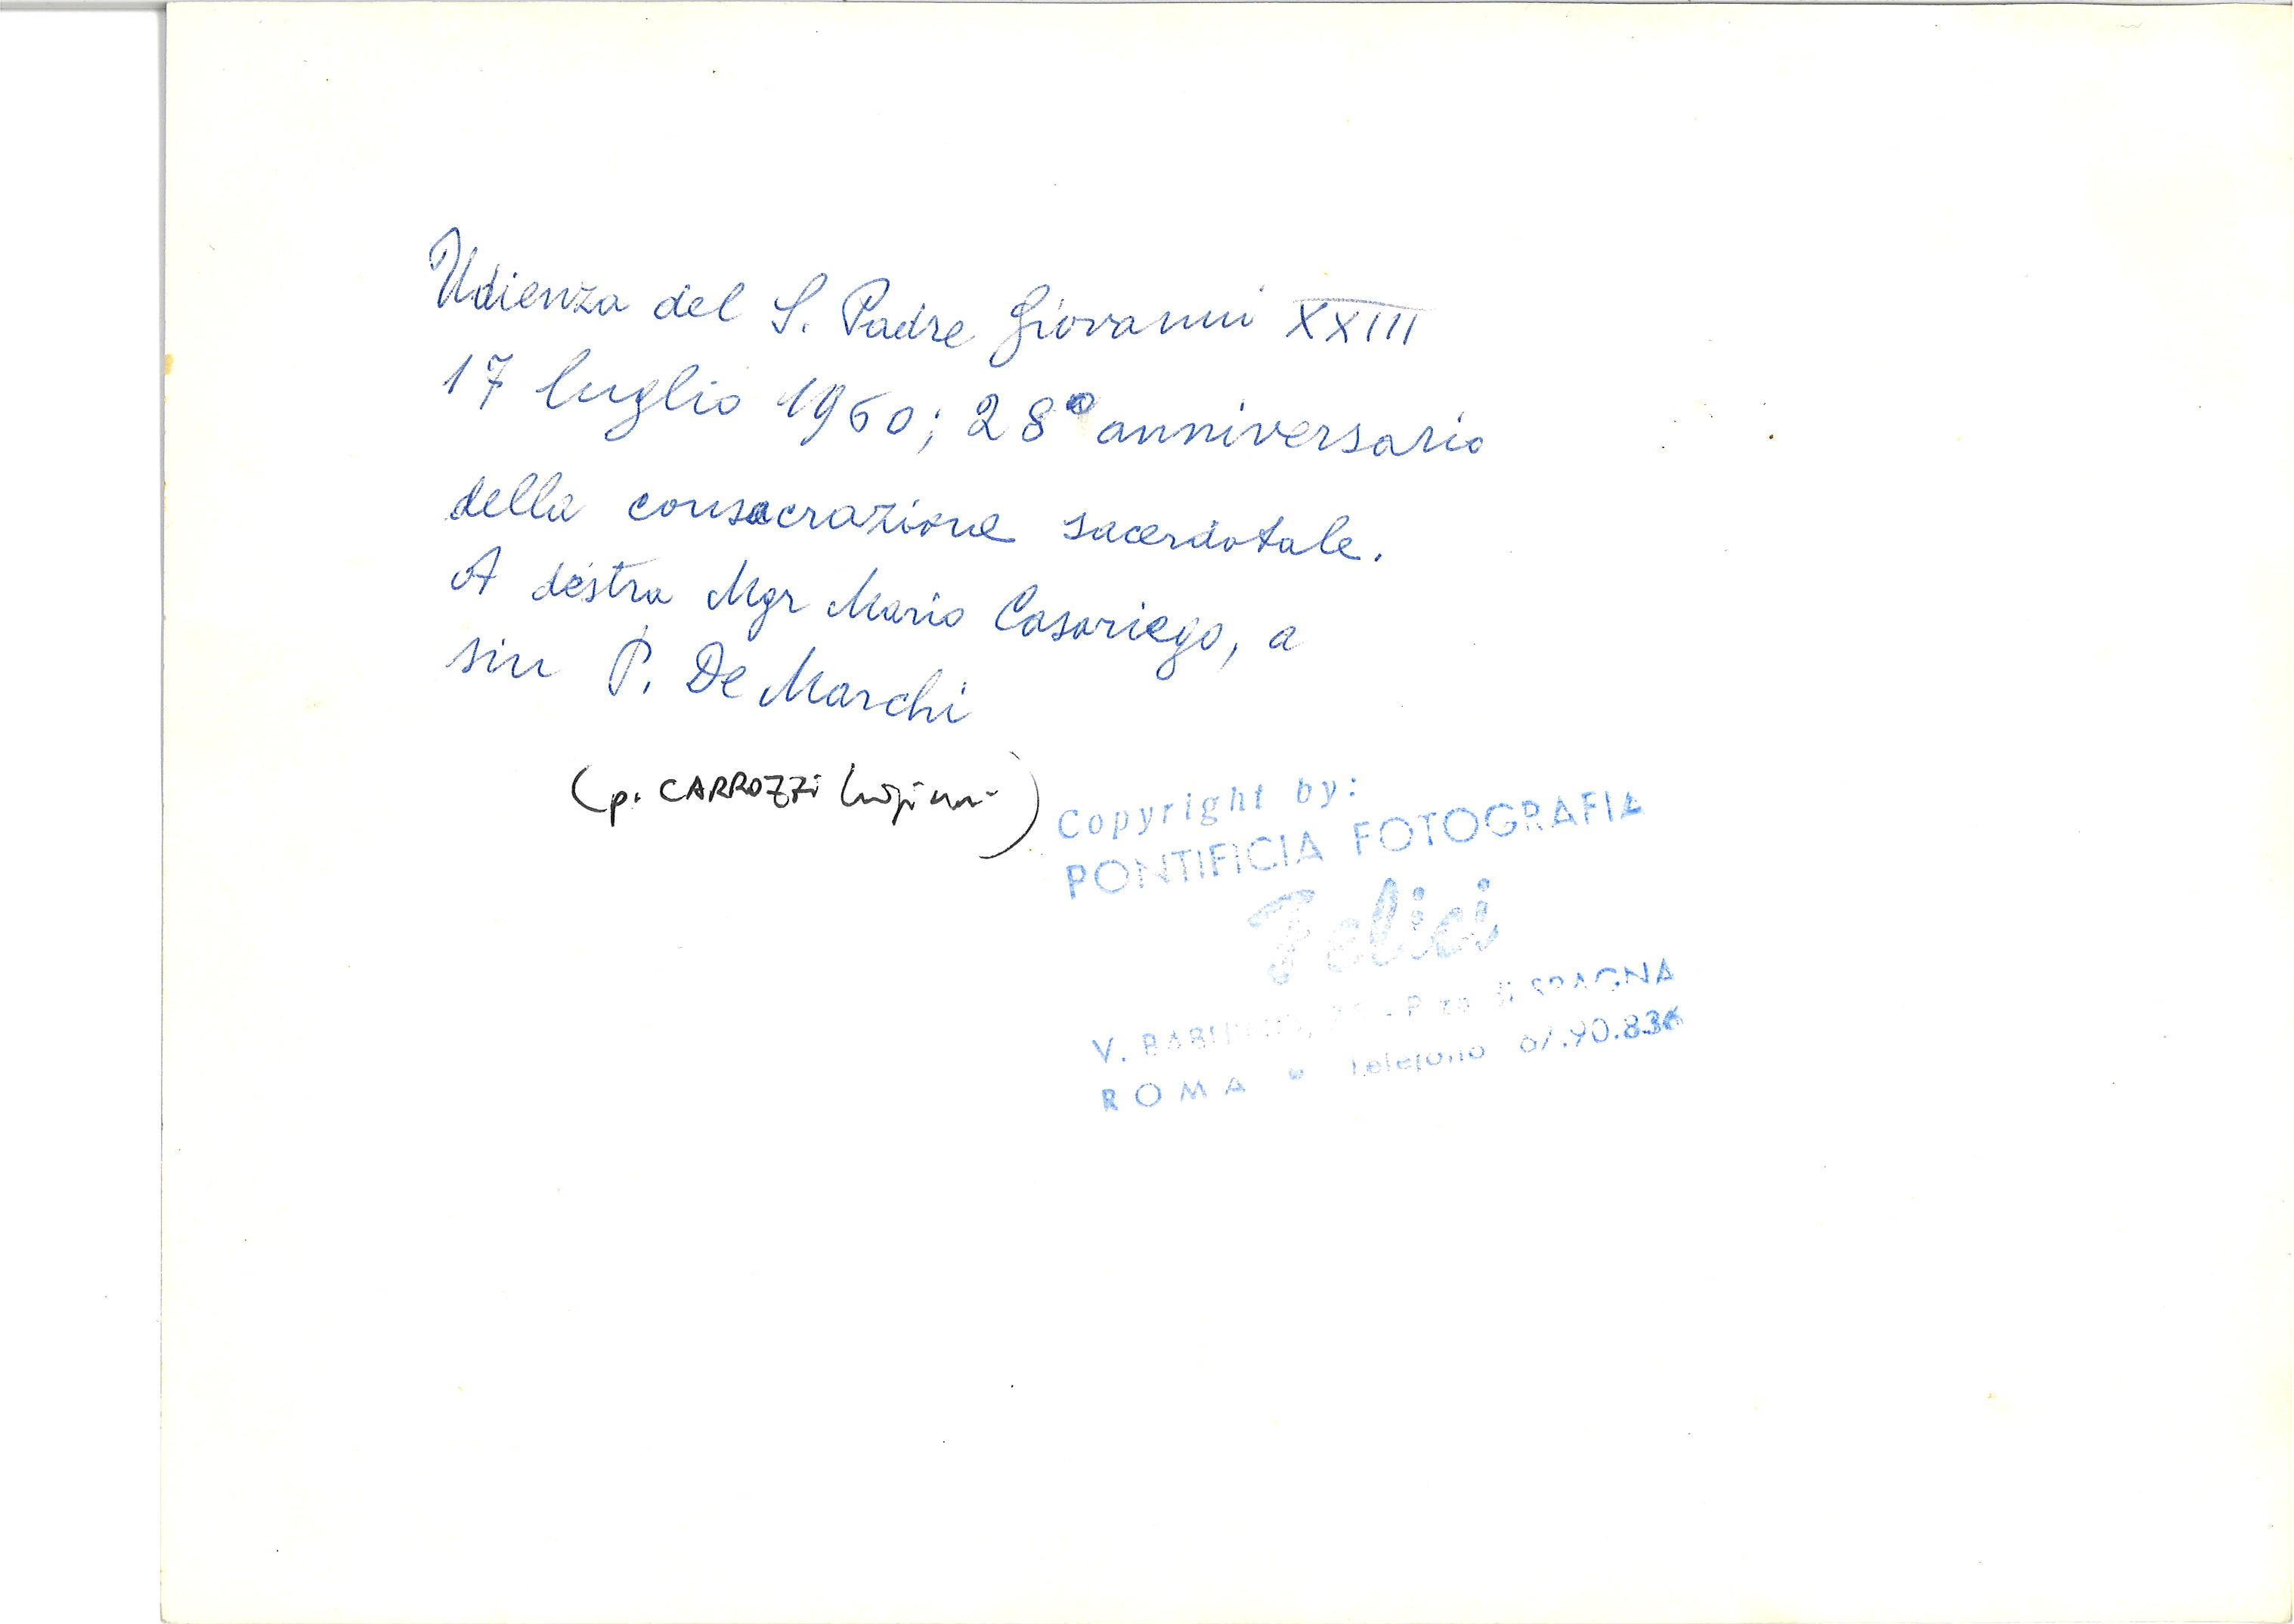 Udienza del S. Padre Giovanni XXIII
17 luglio 1960; 28° anniversario
della consacrazione sacerdotale.
A destra Mgr Mario Casariego, a
sin P. De Marchi
(p. CARROZZI
Copyright by:
PONTIFICIA FOTOGRAFIA
Felici
V. - P.za di SPAGNA
ROMA • Telefono